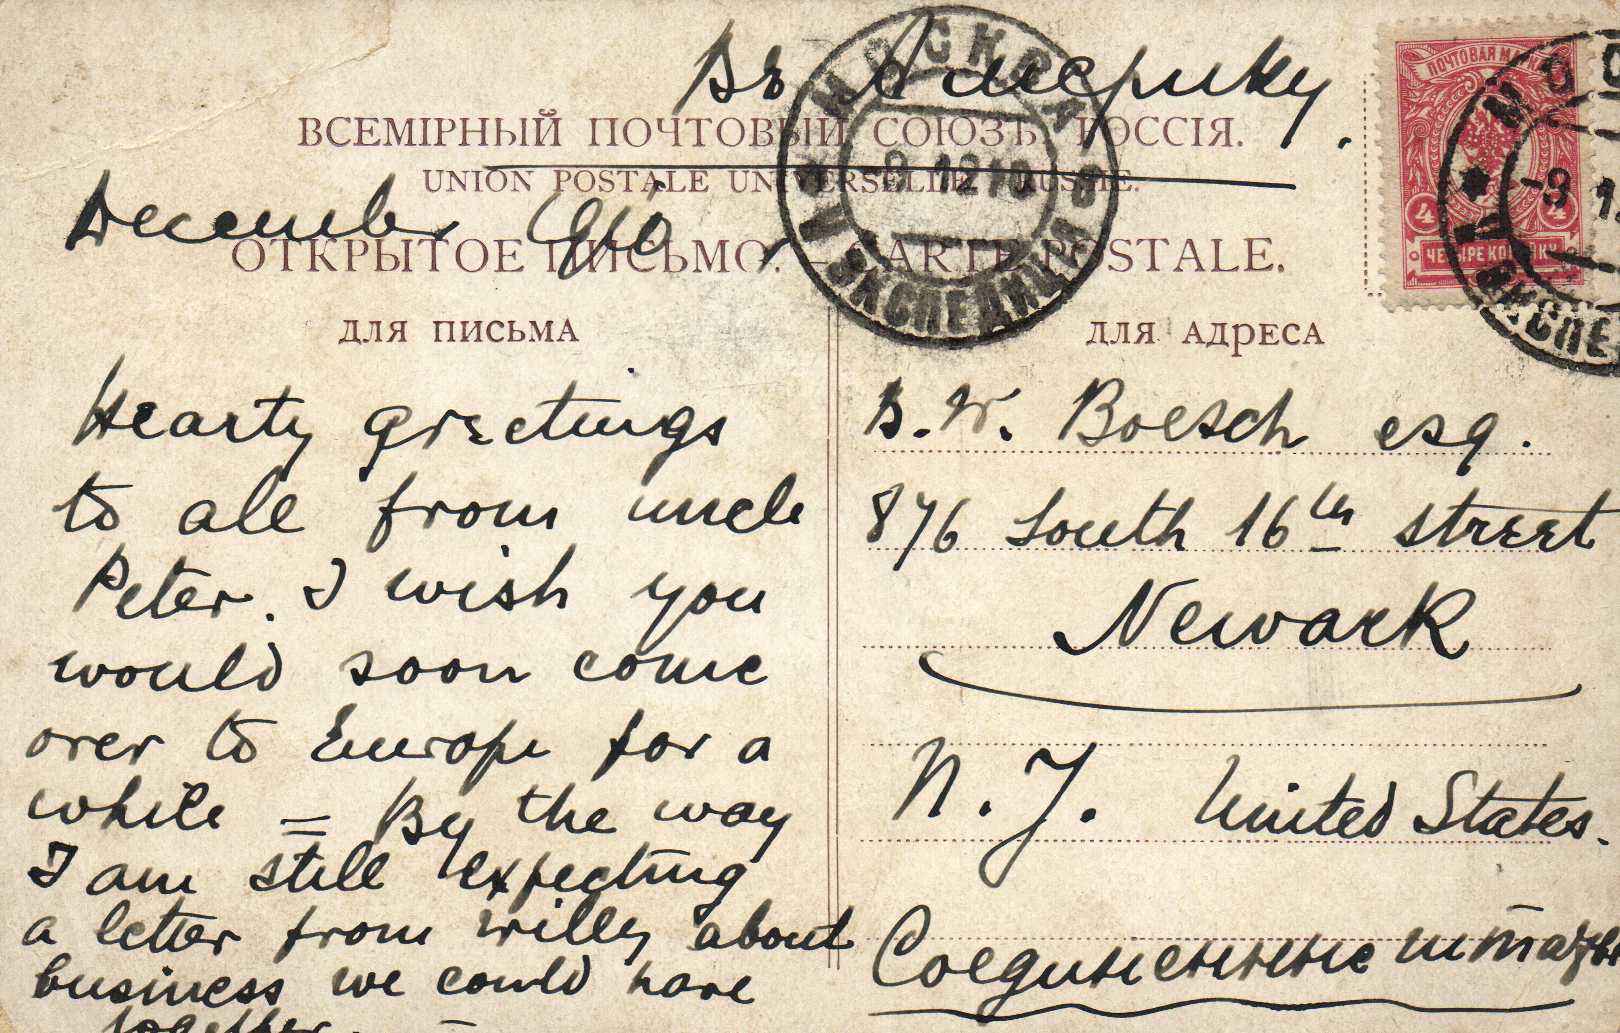 Въ Америку.
ВСЕМІРНЫЙ ПОЧТОВЫЙ СОЮЗЪ. РОССІЯ.
UNION POSTALE UNIVERSELLE. RUSSIE.
December 1910
ОТКРЫТОЕ ПИСЬМО. — CARTE POSTALE.
МОСКВА
9 1210
ЭКСПЕДИЦІЯ
ПОЧТОВАЯ МАРКА
4 4
ЧЕТЫРЕ КОПѢЙКИ
МОС
-9 1
ЭКСПЕ
ДЛЯ ПИСЬМА
Hearty greetings
to all from uncle
Peter. I wish you
would soon come
over to Europe for a
while = By the way
I am still expecting
a letter from Willy about
business we could have
together. —
ДЛЯ АДРЕСА
B. W. Boesch esq.
876 South 16th Street
Newark
N. J. United States.
Соединенные штаты